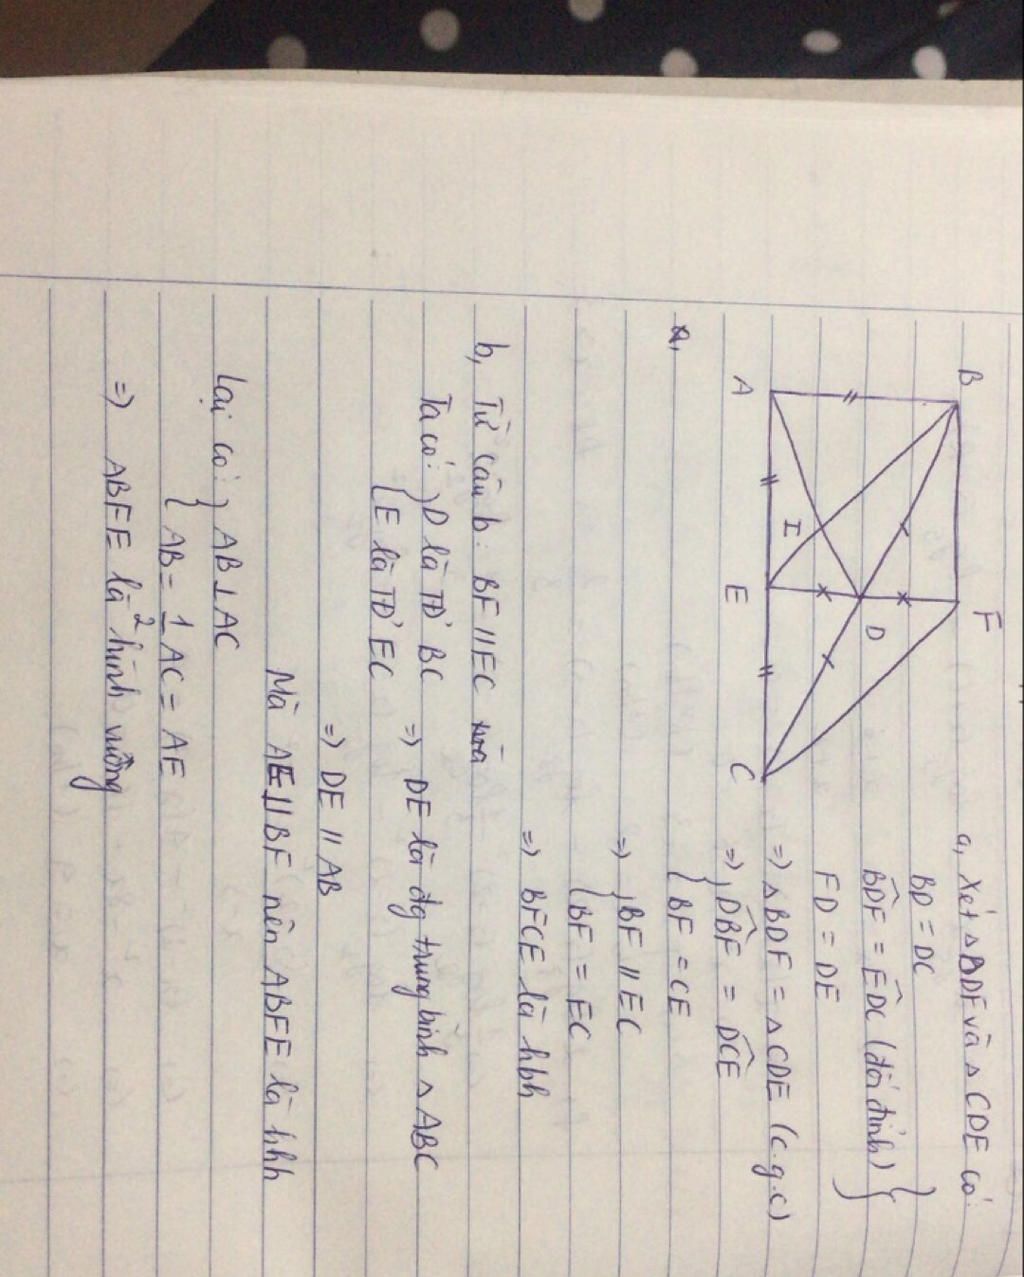 B
F
A
E
C
D
I
a, Xét △BDF và △CDE có:
BD = DC
BDF = EDC (đối đỉnh)
FD = DE
=) △BDF = △CDE (c.g.c)
=) { DBF = DCE
{ BF = CE
a,
=) { BF // EC
{ BF = EC
=) BFCE là hbh
b, Từ câu b: BF // EC
Ta có: { D là TĐ BC =) DE là đg trung bình △ABC
{ E là TĐ EC
=) DE // AB
Mà AE // BF nên ABFE là hbh
Lại có: { AB ⊥ AC
{ AB = 1/2 AC = AE
=) ABFE là hình vuông